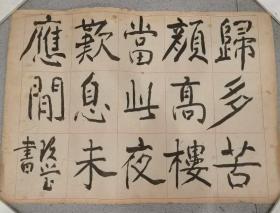 歸多苦
顏高樓
當此夜
歎息未
應閒
書